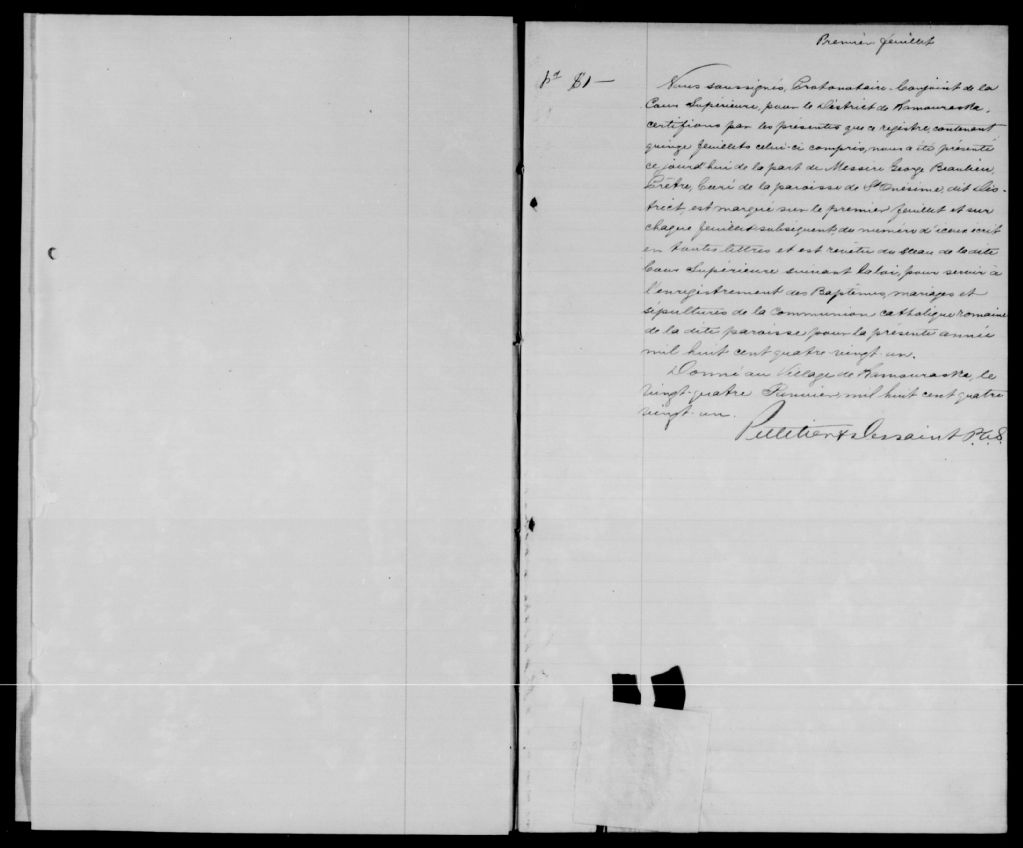 Premier feuillet
pd $1 —
Nous soussignés, Protonotaire-Conjoint de la
Cour Supérieure, pour le District de Kamouraska,
certifions par les présentes que ce registre, contenant
quinze feuillets celui-ci compris, nous a été présenté
ce jourd'hui de la part de Messire George Beaulieu,
Prêtre, Curé de la paroisse de St Onésime, dit Dis-
trict, est marqué sur le premier feuillet et sur
chaque feuillet subséquent, du numéro d'iceux écrit
en toutes lettres et est revêtu du sceau de la dite
Cour Supérieure suivant la loi, pour servir à
l'enregistrement des Baptêmes, mariages et
sépultures de la Communion catholique romaine
de la dite paroisse pour la présente année
mil huit cent quatre-vingt-un.
Donné au Village de Kamouraska, le
vingt-quatre mil huit cent quatre
vingt-un.
Pelletier & Dessaint P.C.S.